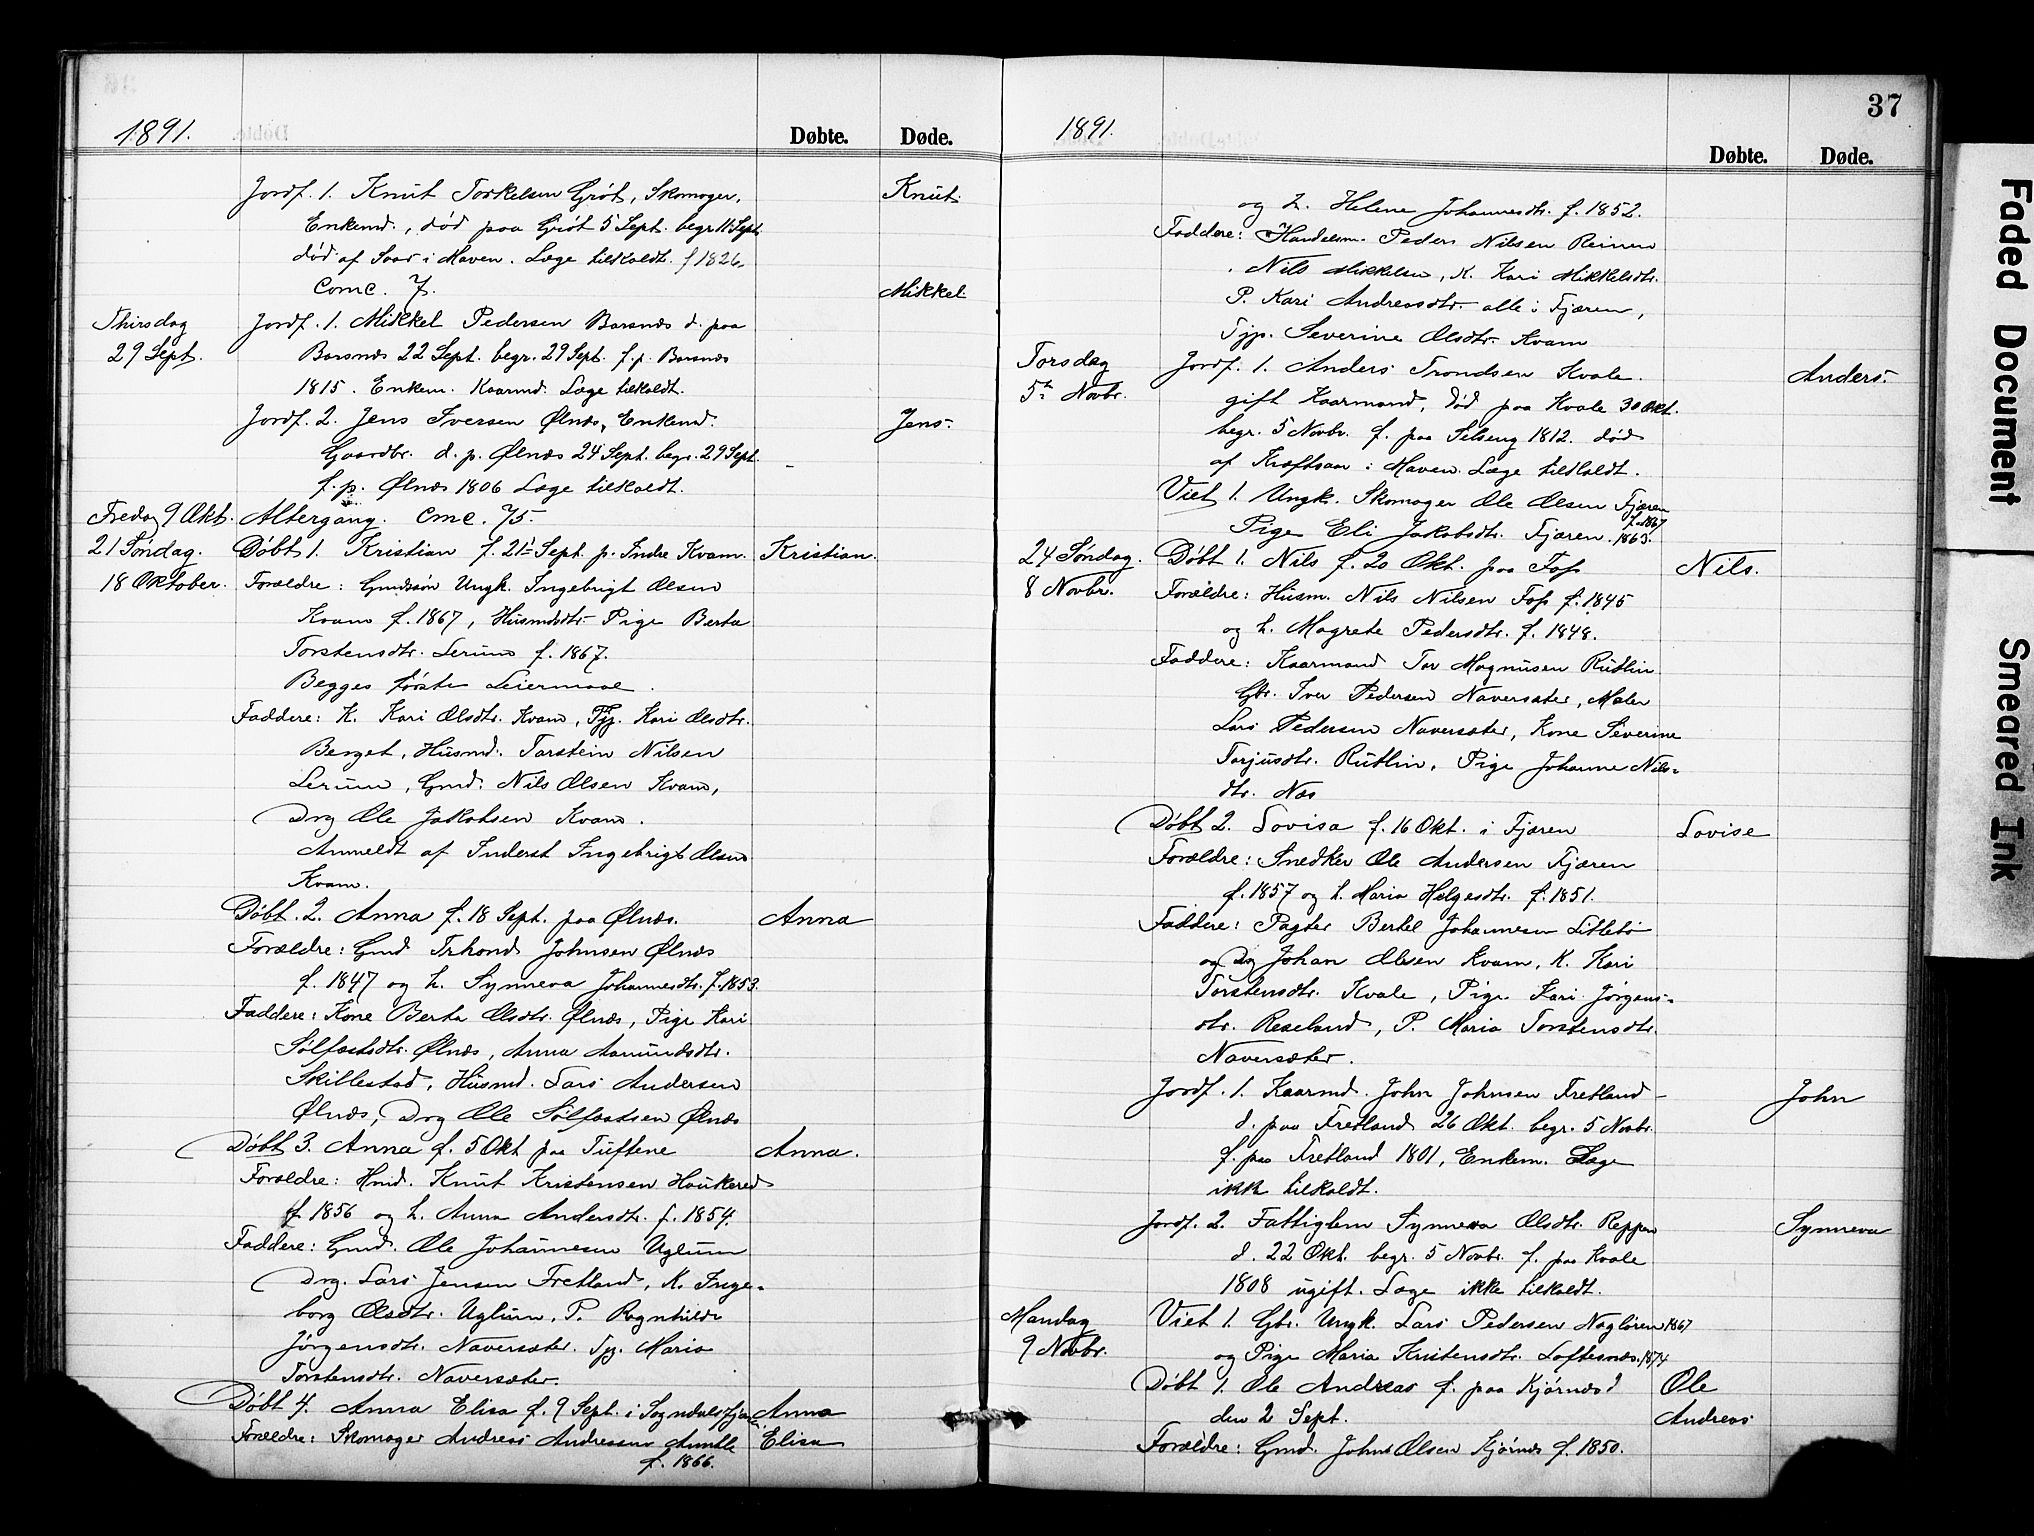 1891.
Døbte.
Døde.
Jordf. 1. Knut Torkelsen Grøt, Skomager, Knut.
Enkemd., død paa Grøt 5 Sept. begr. 11 Sept.
død af Saar i Maven. Læge tilkaldt. f 1826.
Comc. 7. Mikkel
Thirsdag Jordf. 1. Mikkel Pedersen Barsnes d. paa
29 Sept. Barsnes 22 Sept. begr. 29 Sept. f. p. Barsnes
1815. Enkem. Kaarmd. Læge tilkaldt.
Jordf. 2. Jens Iversen Ølnes, Enkemd. Jens.
Gaardbr. d. p. Ølnes 24 Sept. begr. 29 Sept.
f. p. Ølnes 1806 Læge tilkaldt.
Fredag 9 Okt. Altergang. Cmc. 75.
21 Søndag. Døbt 1. Kristian f. 21 Sept. p. Indre Kvam. Kristian.
18 Oktober. Forældre: Gmdssøn Ungk. Ingebrigt Olsen
Kvam f. 1867, Husmdsdtr. Pige Berta
Torstensdtr. Lerum f. 1867.
Begges første Leiermaal.
Faddere: K. Kari Olsdtr. Kvam, Tjp. Kari Olsdtr.
Berget, Husmd. Torstein Nilsen
Lerum, Gmd. Nils Olsen Kvam,
Drg Ole Jakobsen Kvam.
Anmeldt af Inderst Ingebrigt Olsen
Kvam.
Døbt. 2. Anna f. 18 Sept. paa Ølnes. Anna
Forældre: Gmd Trhond Johnsen Ølnes
f. 1847 og h. Synneva Johannesdtr. f. 1853.
Faddere: Kone Berta Olsdtr. Ølnes, Pige Kari
Sølfestsdtr. Ølnes, Anna Aamundsdtr.
Skillestad, Husmd. Lars Andersen
Ølnes, Drg Ole Sølfestsen Ølnes
Døbt 3. Anna f. 5 Okt paa Tuftene Anna.
Forældre: Hmd. Knut Kristensen Haukered
f. 1856 og h. Anna Andersdtr. f. 1854.
Faddere: Gmd. Ole Johannesen Uglum
Drg. Lars Jensen Fretland, K. Inge-
borg Olsdtr. Uglum, P. Ragnhilde
Jørgensdtr. Navarsæter. Tjp. Maria
Torstensdtr. Navarsæter.
Døbt 4. Anna Elisa f. 9 Sept. i Sogndalsfjæren. Anna
Forældre: Skomager Andreas Andreasen Amble Elisa
f. 1866.
37
1891.
Døbte.
Døde.
og h. Helene Johannesdtr. f. 1852.
Faddere: Handelsm. Peders Nilsen Reinen
Nils Mikkelsen, K. Kari Mikkelsdtr.
P. Kari Andreasdtr. alle i Fjæren,
Tjp. Severine Olsdtr. Kvam
Torsdag Jordf. 1. Anders Trondsen Kvale. Anders.
5te Novbr. gift Kaarmand, død paa Kvale 30 Okt.
begr. 5 Novbr. f. paa Selseng 1812. død
af Kræftsaar i Maven. Læge tilkaldt.
Viet 1. Ungk. Skomager Ole Olsen Fjæren
f. 1867
Pige Eli Jakobsdtr. Fjæren. 1863.
24 Søndag. Døbt 1. Nils f. 20 Okt. paa Foss Nils.
8 Novbr. Forældre: Husm. Nils Nilsen Foss f. 1845
og h. Magrete Pedersdtr. f. 1848.
Faddere: Kaarmand Tor Magnusen Rutlin
Gbr. Iver Pedersen Navarsæter, Maler
Lars Pedersen Navarsæter, Kone Severine
Torjusdtr. Rutlin, Pige Johanne Nils-
dtr. Næs
Døbt 2. Lovisa f. 16 Okt. i Fjæren Lovise
Forældre: Snedker Ole Andersen Fjæren
f. 1857 og h. Maria Helgesdtr. f. 1851.
Faddere: Pagter Bertel Johannesen Litlebø
og Drg Johan Olsen Kvam, K. Kari
Torstensdtr. Kvale, Pige Kari Jørgens-
dtr. Reseland, P. Maria Torstensdtr.
Navarsæter.
Jordf. 1. Kaarmd. John Johnsen Fretland John
d. paa Fretland 26 Okt. begr. 5 Novbr.
f. paa Fretland 1801, Enkem. Læge
ikke tilkaldt.
Jordf. 2. Fattiglem Synneva Olsdtr. Reppen Synneva
d. 22 Okt. begr. 5 Novbr. f. paa Kvale
1808 ugift. Læge ikke tilkaldt.
Mandag Viet 1. Gbr. Ungk. Lars Pedersen Nagløren 1867
9 Novbr. og Pige Maria Kristensdtr. Loftesnes. 1874
Døbt 1. Ole Andreas f. paa Kjørnes d Ole
den 2 Sept. Andreas
Forældre: Gmd. Johns Olsen Kjørnes f. 1850.
Faded Document
Smeared Ink